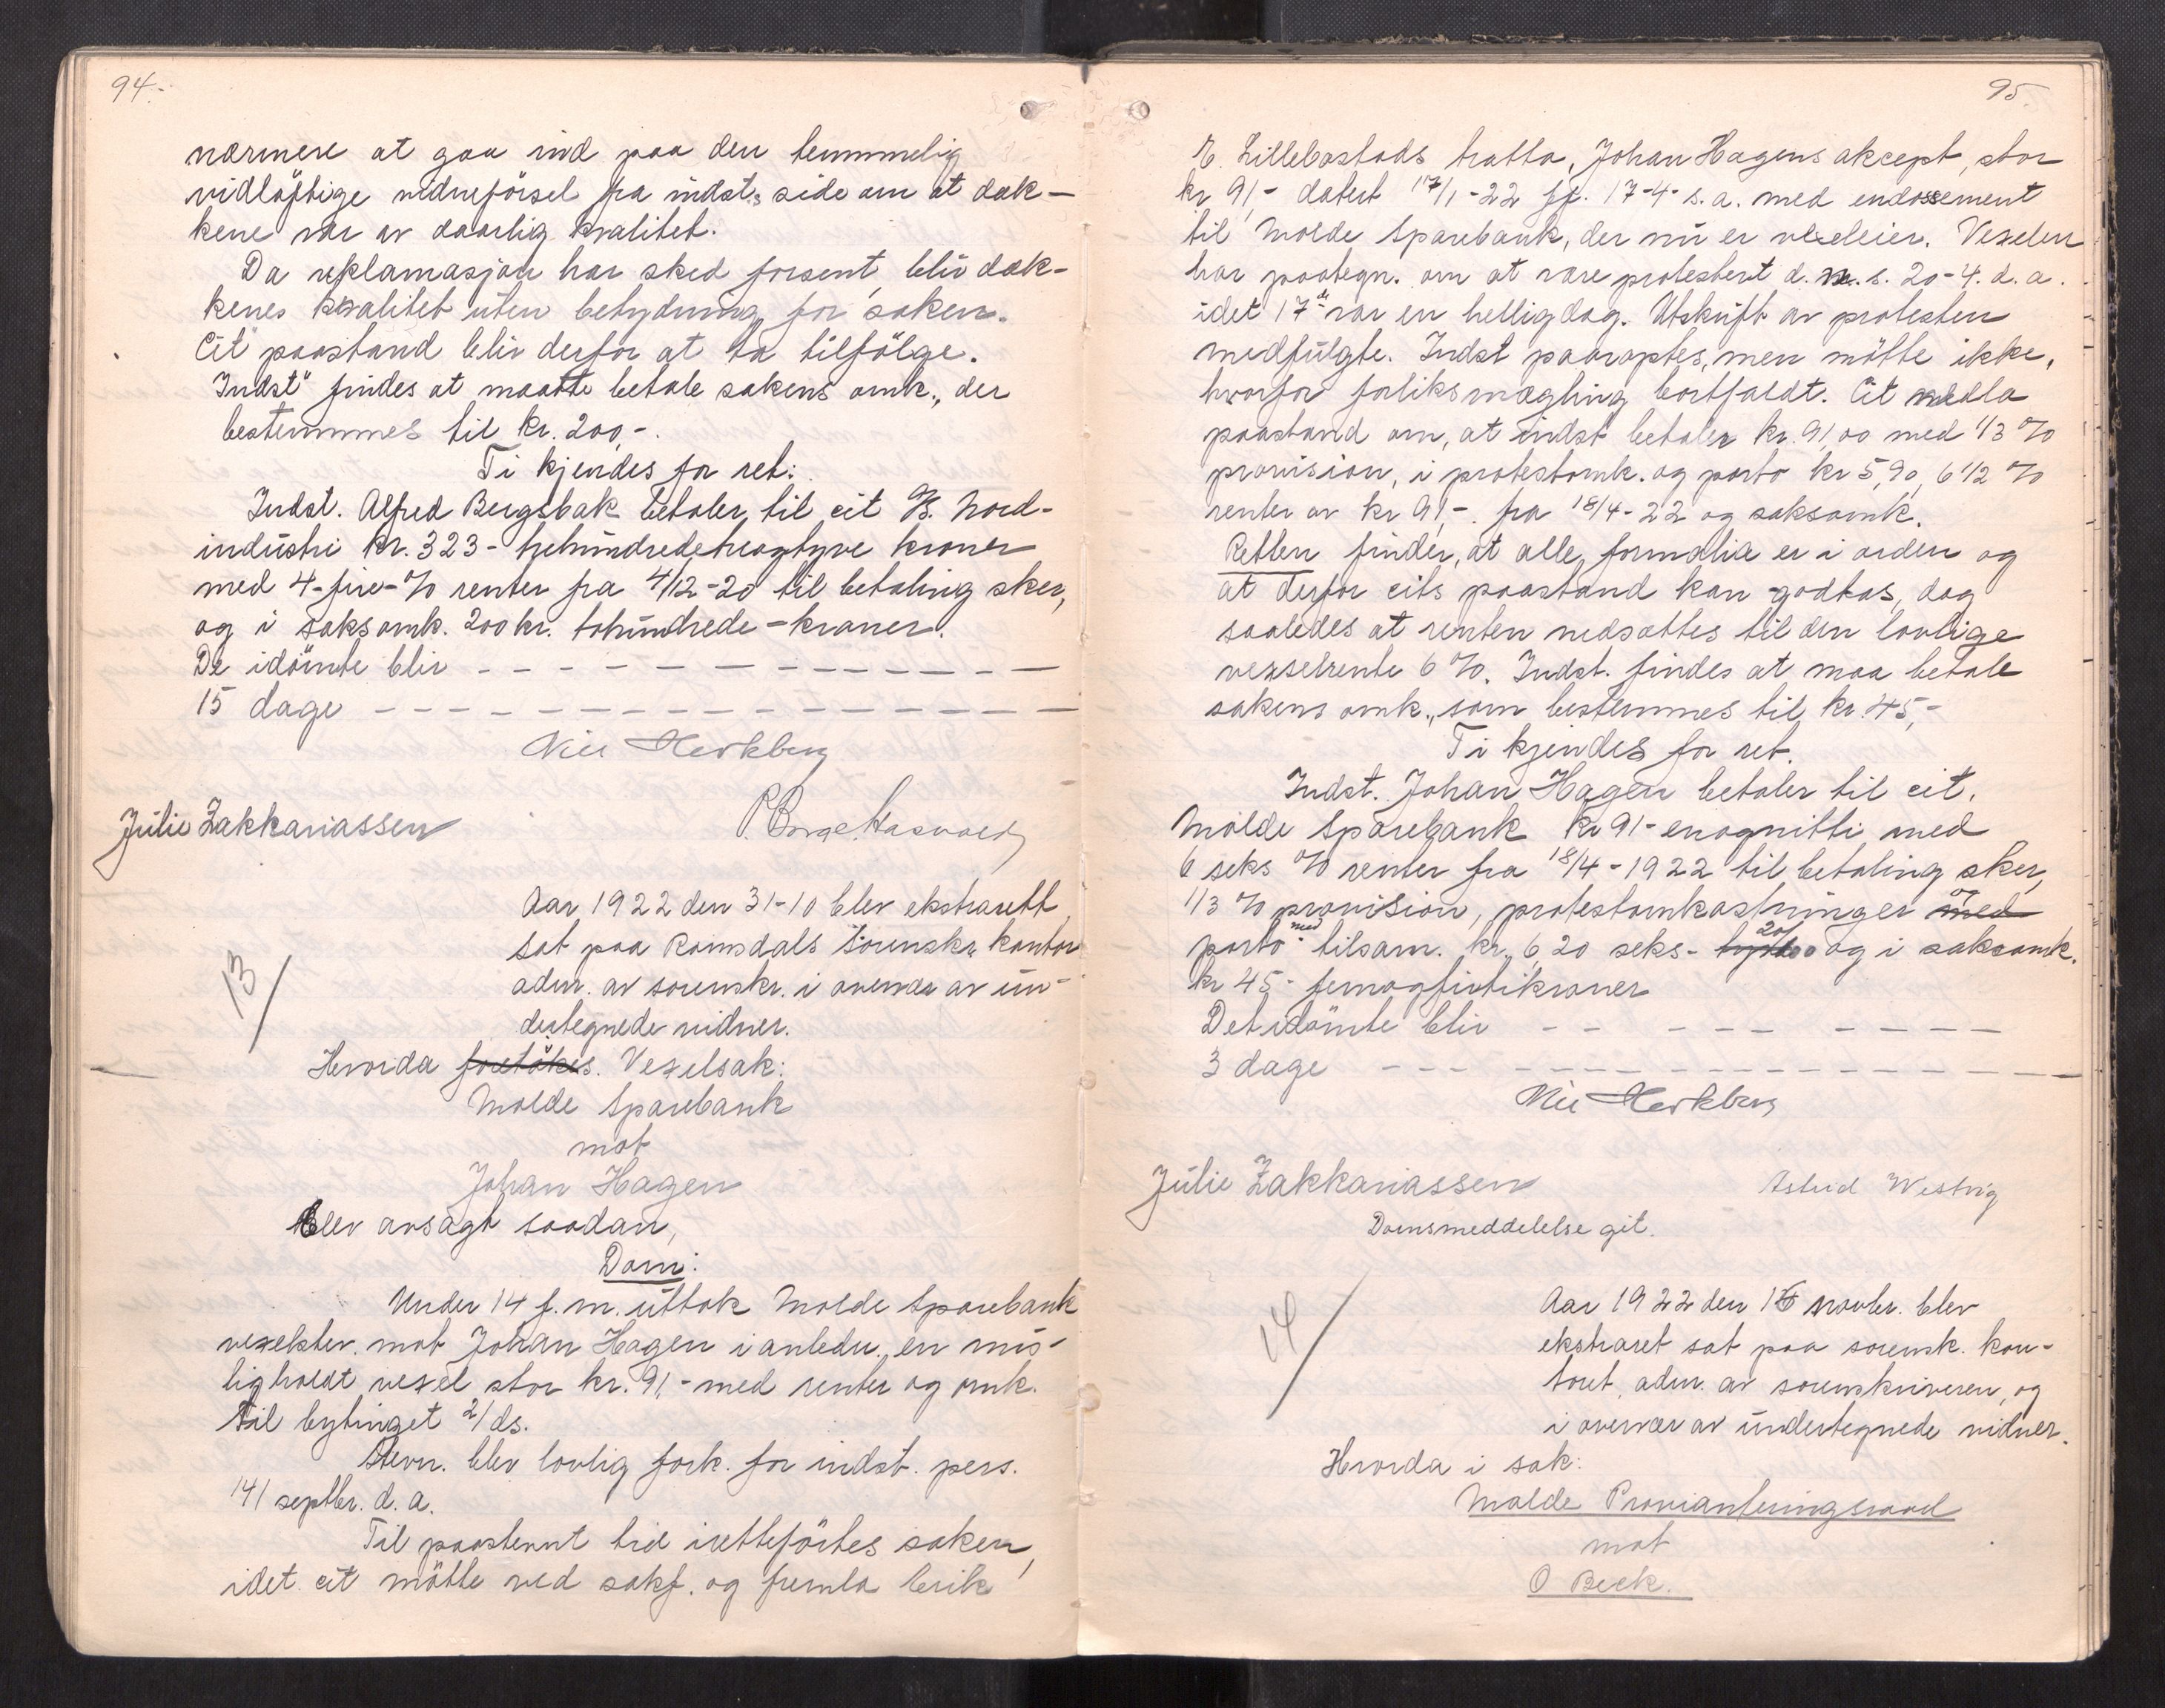 94.-
nærmere at gaa ind paa den temmelig
vidløftige vidneførsel fra indst.s side om at dæk-
kene var av daarlig kvalitet.
Da reklamasjon har sked forsent, blir dæk-
kenes kvalitet uten betydning for saken.
Cit paastand blir derfor at ta tilfölge.
Indst" findes at maatte betale sakens omk., der
bestemmes til kr. 200,-.
Ti kjendes for ret:
Indst. Alfred Bergsbak betaler til cit A/S. Nord-
industri kr. 323- trehundredetreogtyve kroner
med 4-fire-% renter fra 4/12-20 til betaling sker,
og i saksomk. 200 kr. tohundrede-kroner.
De idömte blir - - - - - - - - - - - -
15 dage - - - - - - - - - - - - - - -
Julie Zakkariassen
Aar 1922 den 31-10 blev ekstrarett
sat paa Romsdals Sorenskr. kontor
adm. av sorenskr. i overvær av un-
dertegnede vidner.
13/
Hvorda foretokes. Vexelsak:
Molde Sparebank
mot
Johan Hagen
Blev avsagt saadan,
Dom:
Under 14 f. m. uttok Molde Sparebank
vexelstev. mot Johan Hagen i anledn. en mis-
ligholdt vexel stor kr. 91,- med renter og omk.
til bytinget 2/ ds.
Stevn. blev lovlig fork. for indst. pers.
14/ septbr. d. a.
Til paastemt tid iretteförtes saken,
idet cit mötte ved sakf. og fremla Erik
95.
E. Lillebostads tratta, Johan Hagens akcept, stor
kr 91,- datert 17/1-22 pf. 17-4- s.a. med endossement
til Molde Sparebank, der nu er vexeleier. Vexelen
har paategn. om at være protestert d. m. s. 20-4. d. a.
idet 17de var en helligdag. Utskrift av protesten
medfulgte. Indst paaroptes, men mötte ikke,
hvorfor forliksmægling bortfaldt. Cit nedla
paastand om, at indst betaler kr. 91,00 med 1/3 %
provision, i protestomk. og porto kr 5,90, 6 1/2 %
renter av kr 91,-. fra 18/4-22 og saksomk.
Retten finder, at alle formalia er i orden og
at derfor cits paastand kan godtas, dog
saaledes at renten nedsættes til den lovlige
vexselrente 6 %. Indst. findes at maa betale
sakens omk., som bestemmes til kr. 45,-
Ti kjendes for ret.
Indst. Johan Hagen betaler til cit.
Molde Sparebank kr 91- enognitti med
6 seks % renter fra 18/4-1922 til betaling sker,
1/3 % provision, protestomkostninger med og
porto med tilsam. kr. 6,20 seks- 20/ og i saksomk.
kr 45- femogfirtikroner
Det idömte blir - - - - - - - - -
3 dage - - - - - - - - - - - - - - -
Julie Zakkariassen Astrid Westvig
Domsmeddelelse git.
14/
Aar 1922 den 16 novbr. blev
ekstraret sat paa sorensk. kon-
toret, adm. av sorenskriveren, og
i overvær av undertegnede vidner.
Hvorda i sak:
Molde Provianteringsraad
mot
O Beck.